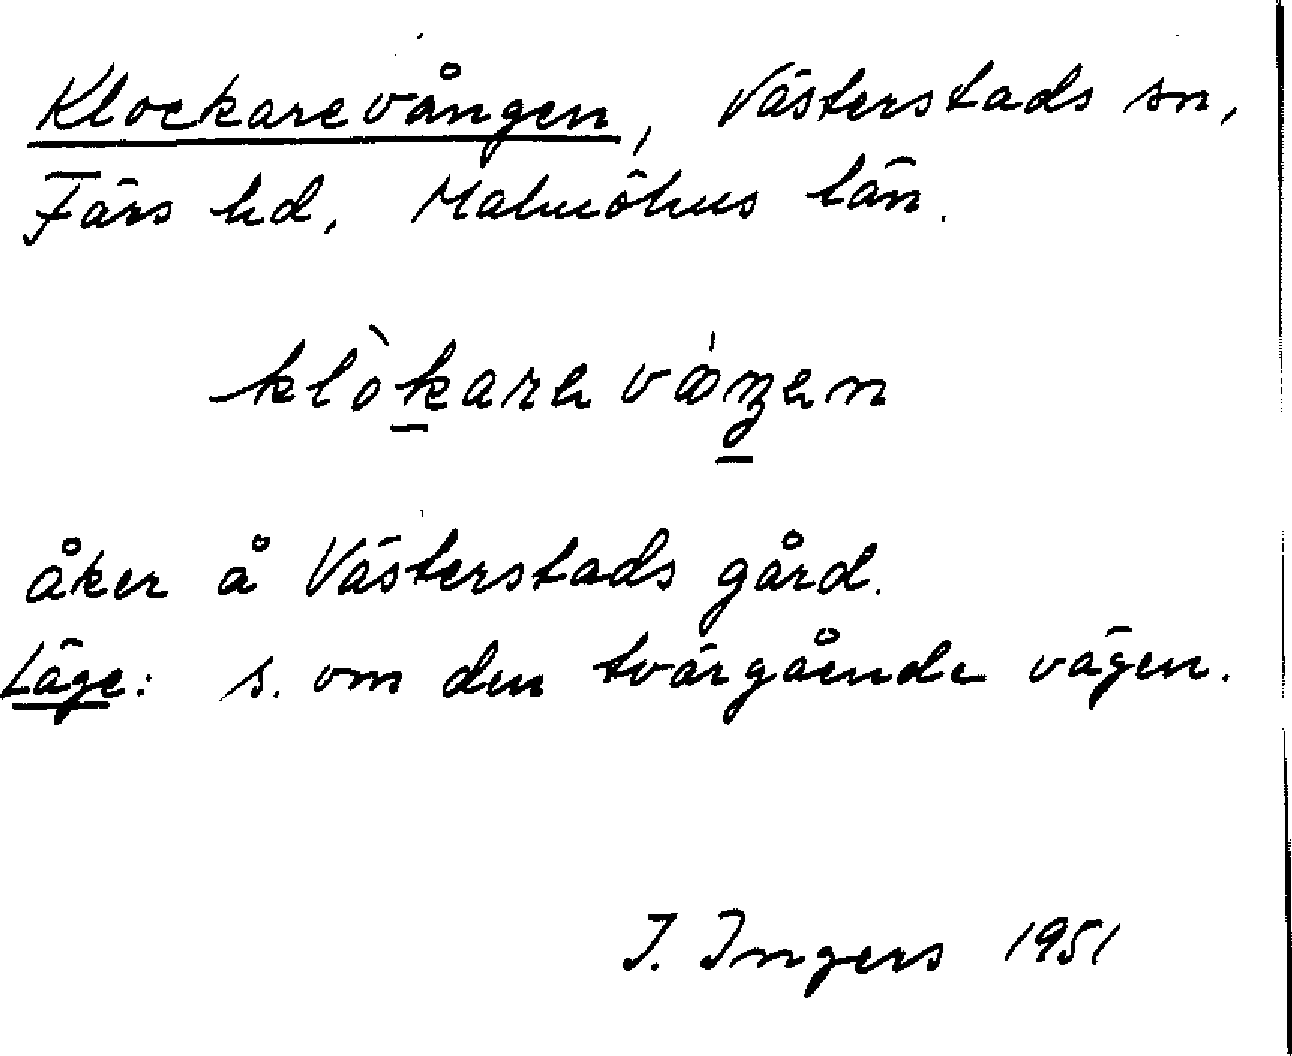 Klockarevången, Västerstads sn,
Färs hd, Malmöhus län.
klòkare vángen
åker å Västerstads gård.
Läge: s. om den tvärgående vägen.
I. Ingers 1951